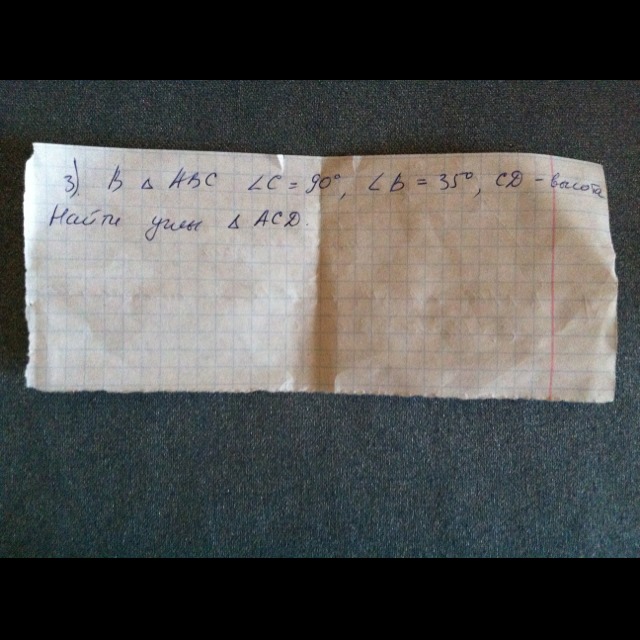 3) В △ АВС ∠C = 90°, ∠B = 35°, CD - высота
Найти углы △ ACD.